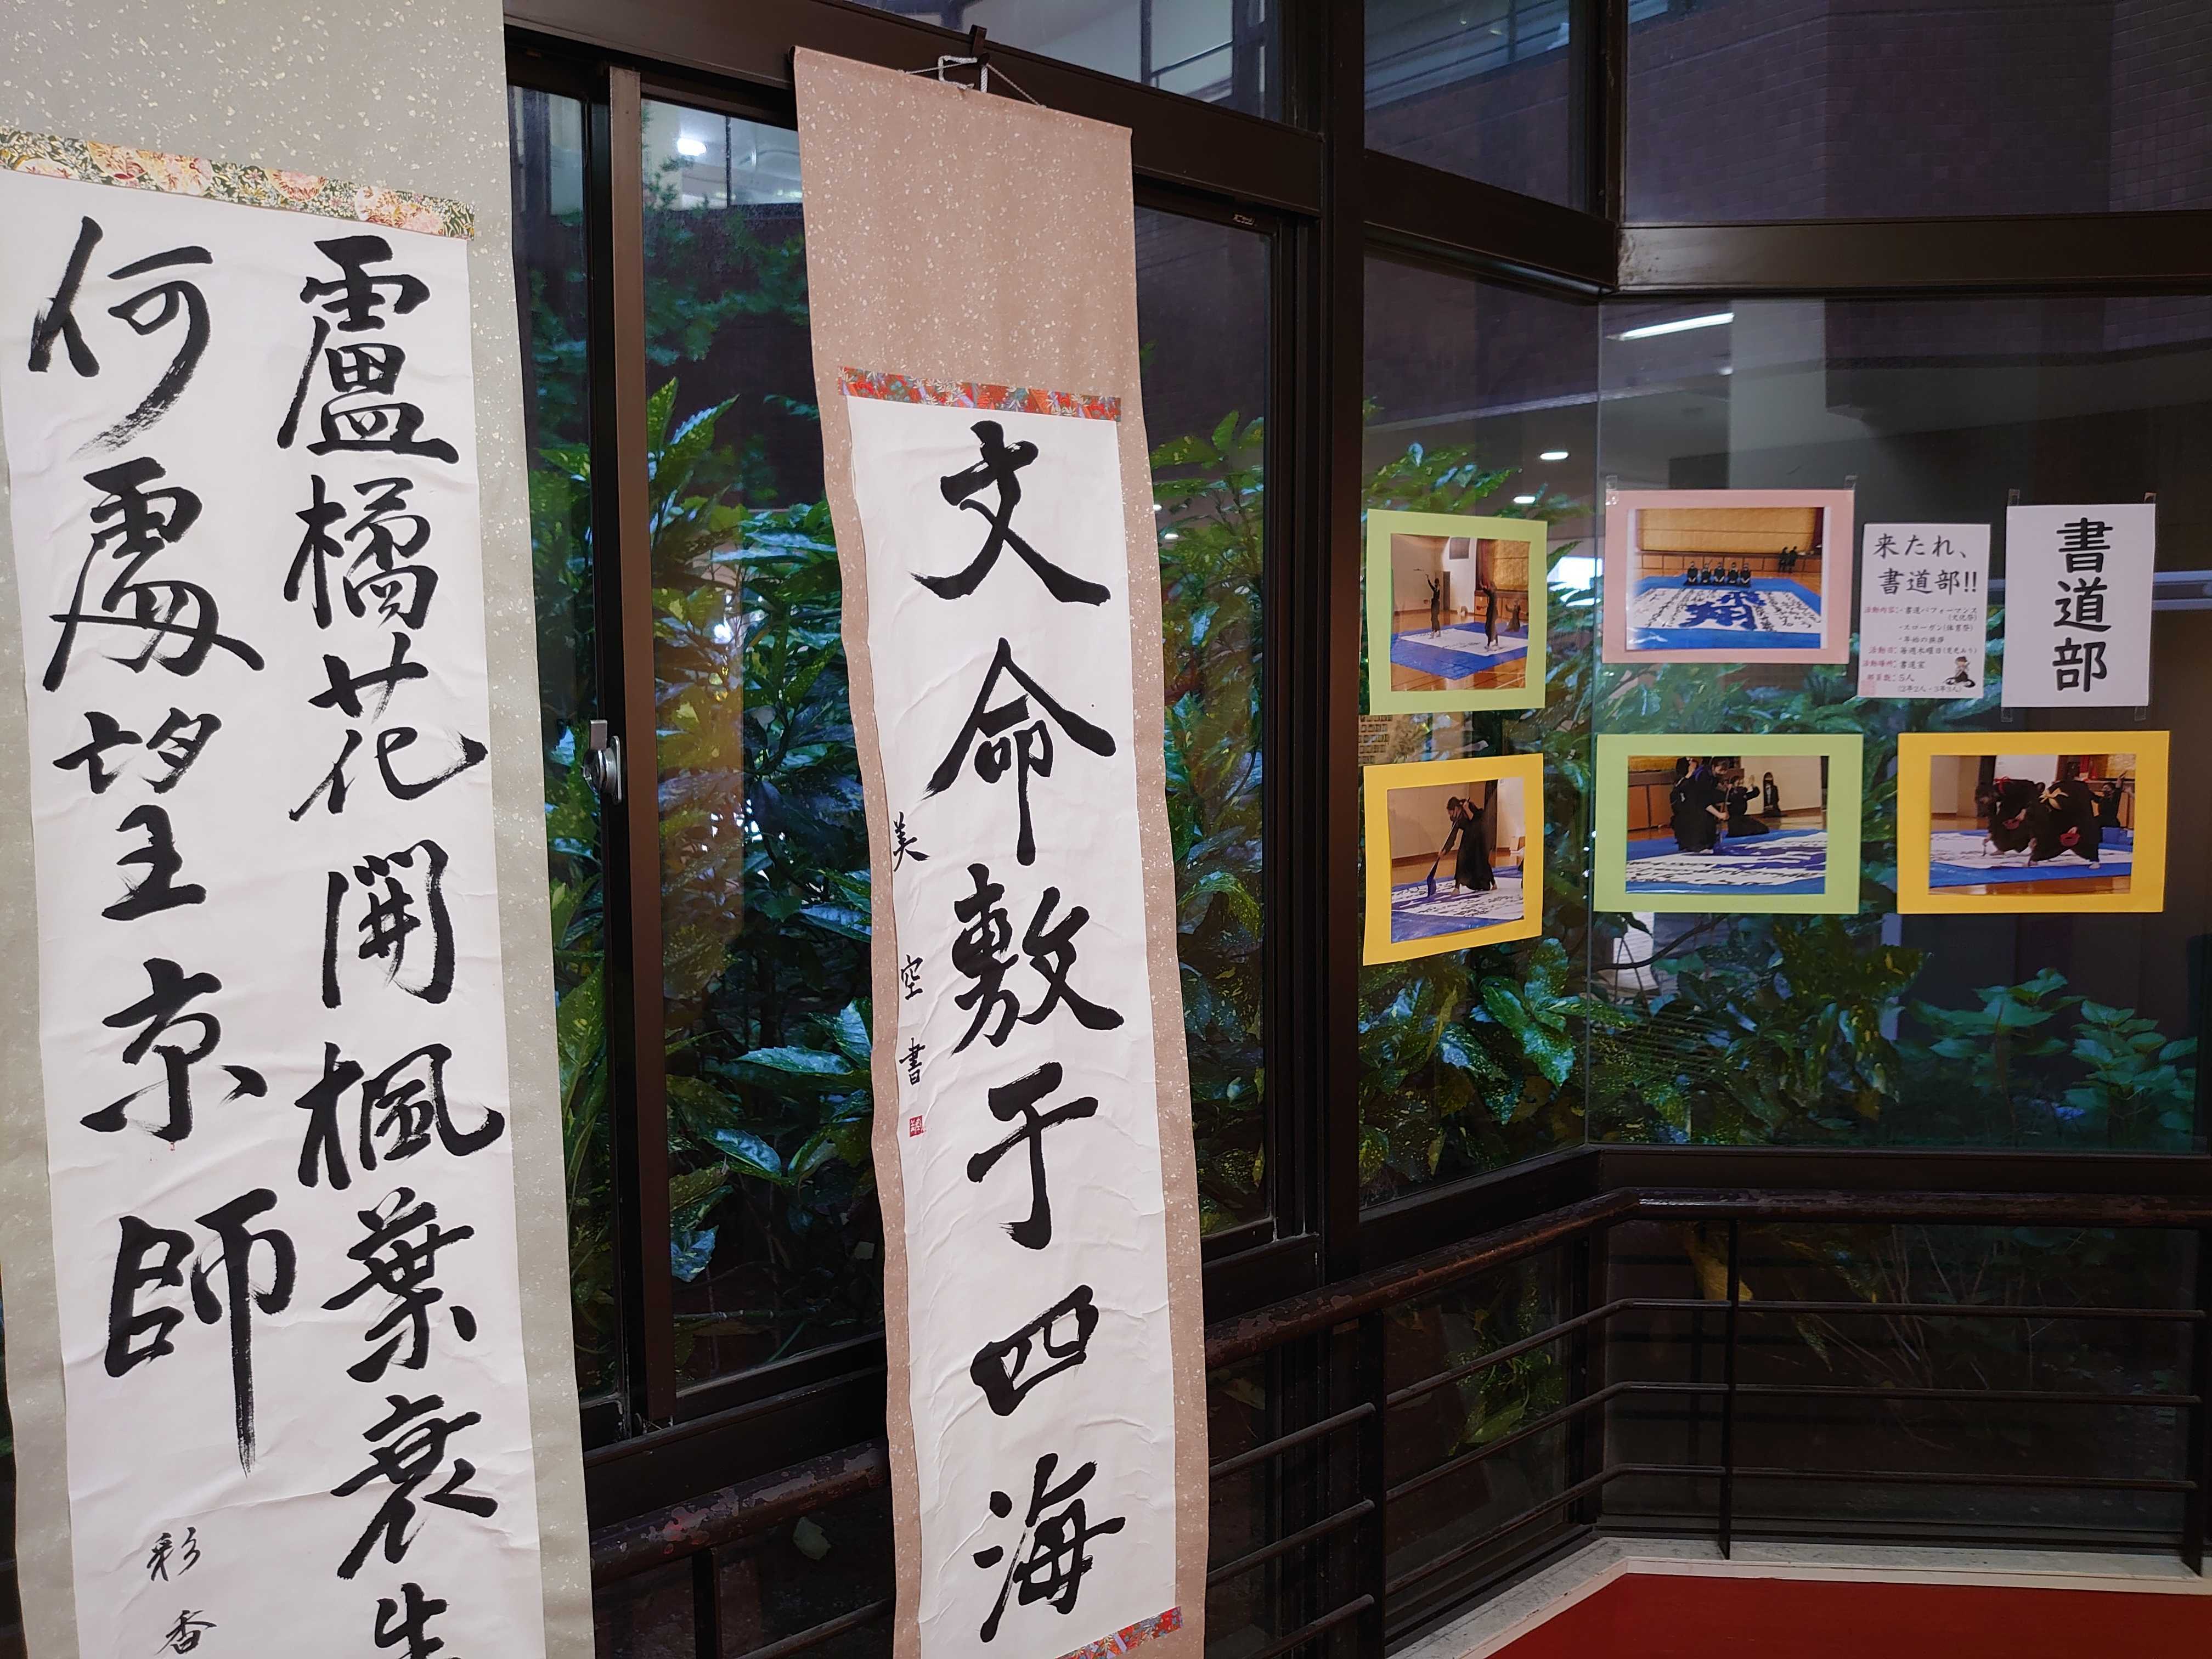 盧橘花開楓葉衰
何處望京師
彩香
文命敷于四海
美空書
来たれ、
書道部!!
活動内容:・書道パフォーマンス
(文化祭)
・スローガン(体育祭)
・年始の挨拶
活動日:毎週水曜日
活動場所:書道室
部員数:5人
(2年2人・3年3人)
書道部